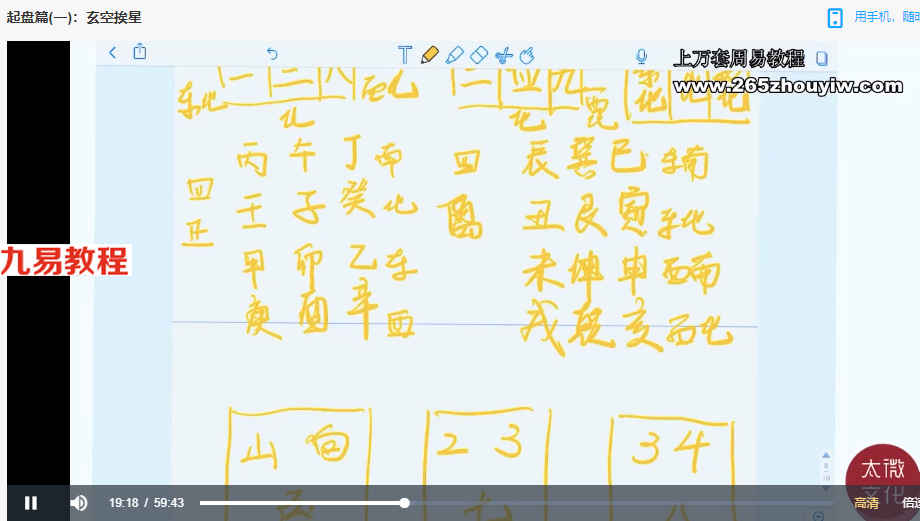 起盘篇(一)：玄空挨星
用手机，随时
上万套周易教程
www.265zhouyiw.com
九易教程
东北 一 二 八 西北
二 四 九
北
丙 午 丁 南
四正
壬 子 癸 北
甲 卯 乙 东
庚 酉 辛 西
四
隅
辰 巽 巳 东南
丑 艮 寅 东北
未 坤 申 西南
戌 乾 亥 西北
山 向
五
2 3
七
3 4
八
太微
文化
19:18 / 59:43
高清
倍速